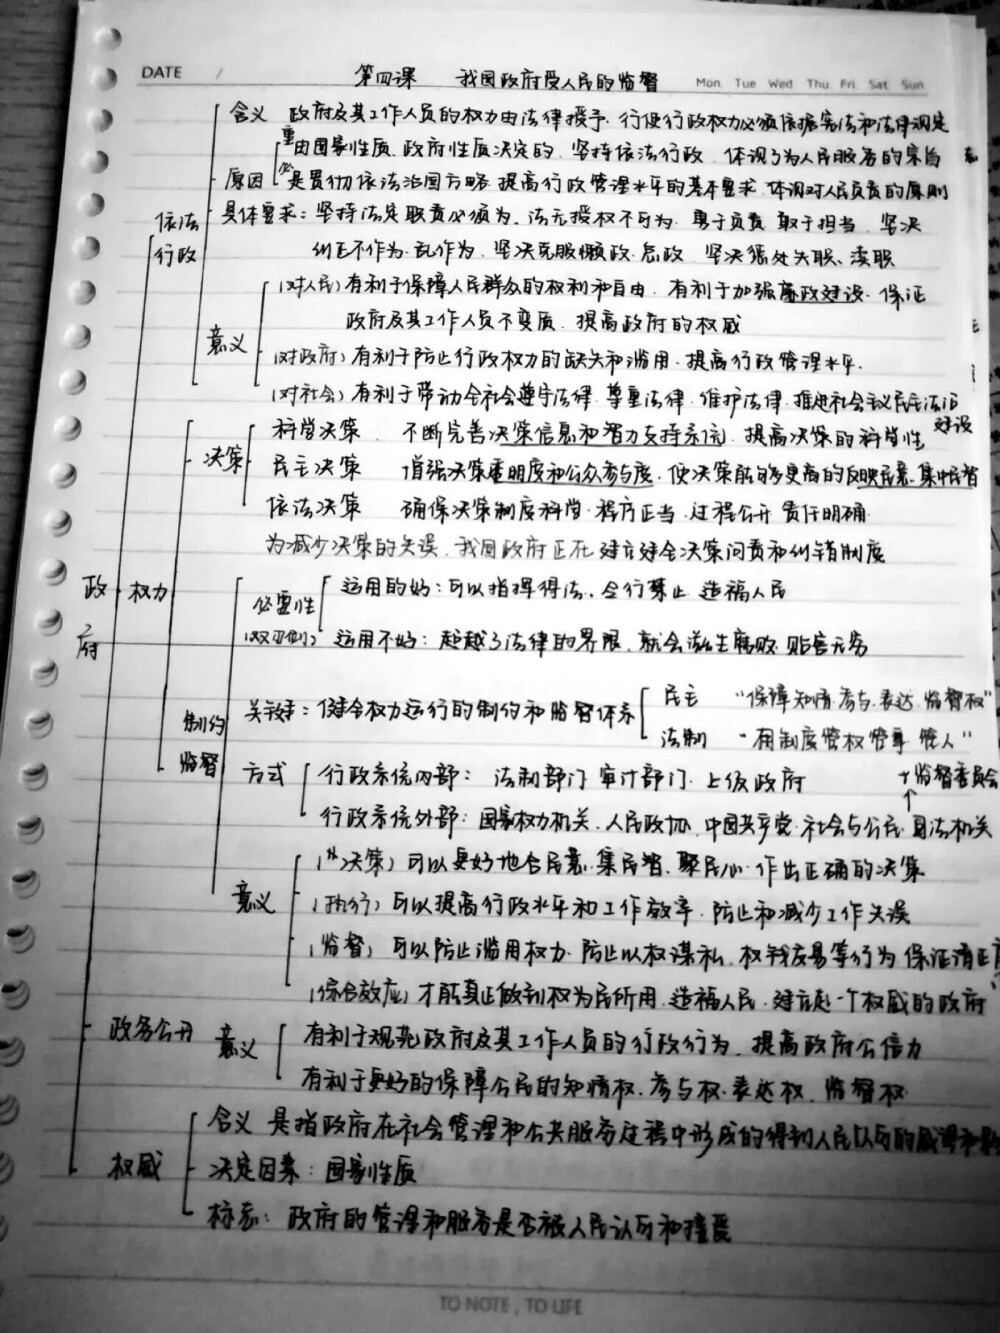 DATE /
第四课 我国政府受人民的监督
Mon Tue Wed Thu Fri Sat Sun
含义 政府及其工作人员的权力由法律授予.行使行政权力必须依据宪法和法律规定
重 由国家性质.政府性质决定的.坚持依法行政.体现了为人民服务的宗旨
原因 必 是贯彻依法治国方略.提高行政管理水平的基本要求.体现对人民负责的原则
依法行政
具体要求：坚持法定职责必须为、法无授权不可为.勇于负责 敢于担当、坚决
纠正不作为.乱作为、坚决克服懒政.怠政 坚决惩处失职、渎职
(对人民)有利于保障人民群众的权利和自由.有利于加强廉政建设.保证
政府及其工作人员不变质.提高政府的权威
意义
(对政府)有利于防止行政权力的缺失和滥用.提高行政管理水平.
(对社会)有利于带动全社会遵守法律.尊重法律.维护法律.推进社会主义民主法治
建设
科学决策 不断完善决策信息和智力支持系统.提高决策的科学性
决策 民主决策 增强决策透明度和公众参与度.使决策能够更高的反映民意.集中民智
依法决策 确保决策制度科学.程序正当.过程公开 责任明确.
为减少决策的失误.我国政府正在建立健全决策问责和纠错制度
政府 权力
必要性 运用的好：可以指挥得法、令行禁止 造福人民
(双刃剑) 运用不好：超越了法律的界限、就会滋生腐败.贻害无穷
制约监督
关键：健全权力运行的制约和监督体系 民主 “保障知情.参与.表达.监督权”
法制 “用制度管权管事 管人”
方式 行政系统内部：法制部门 审计部门.上级政府
+监督委员会
↑
行政系统外部：国家权力机关、人民政协.中国共产党.社会与公民.司法机关
(决策)可以更好地合民意.集民智.聚民心.作出正确的决策
意义 (执行)可以提高行政水平和工作效率.防止和减少工作失误
(监督)可以防止滥用权力.防止以权谋私、权钱交易等行为 保证清正
(综合效应)才能真正做到权为民所用.造福人民.建立起一个权威的政府
政务公开 意义 有利于规范政府及其工作人员的行政行为、提高政府公信力
有利于更好的保障公民的知情权.参与权.表达权、监督权
含义 是指政府在社会管理和公共服务过程中形成的得到人民认同的威望和
权威 决定因素：国家性质
标志：政府的管理和服务是否被人民认可和接受
TO NOTE , TO LIFE